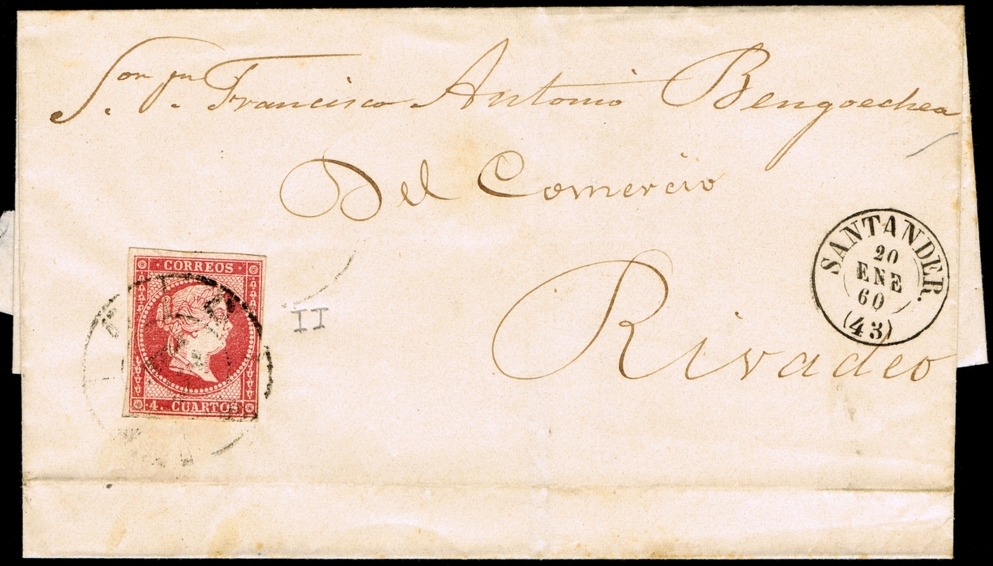 Francisco Antonio Bengoechea
Del Comercio
Rivadeo
SANTANDER.
20
ENE
60
(43)
CORREOS
4. CUARTOS
II